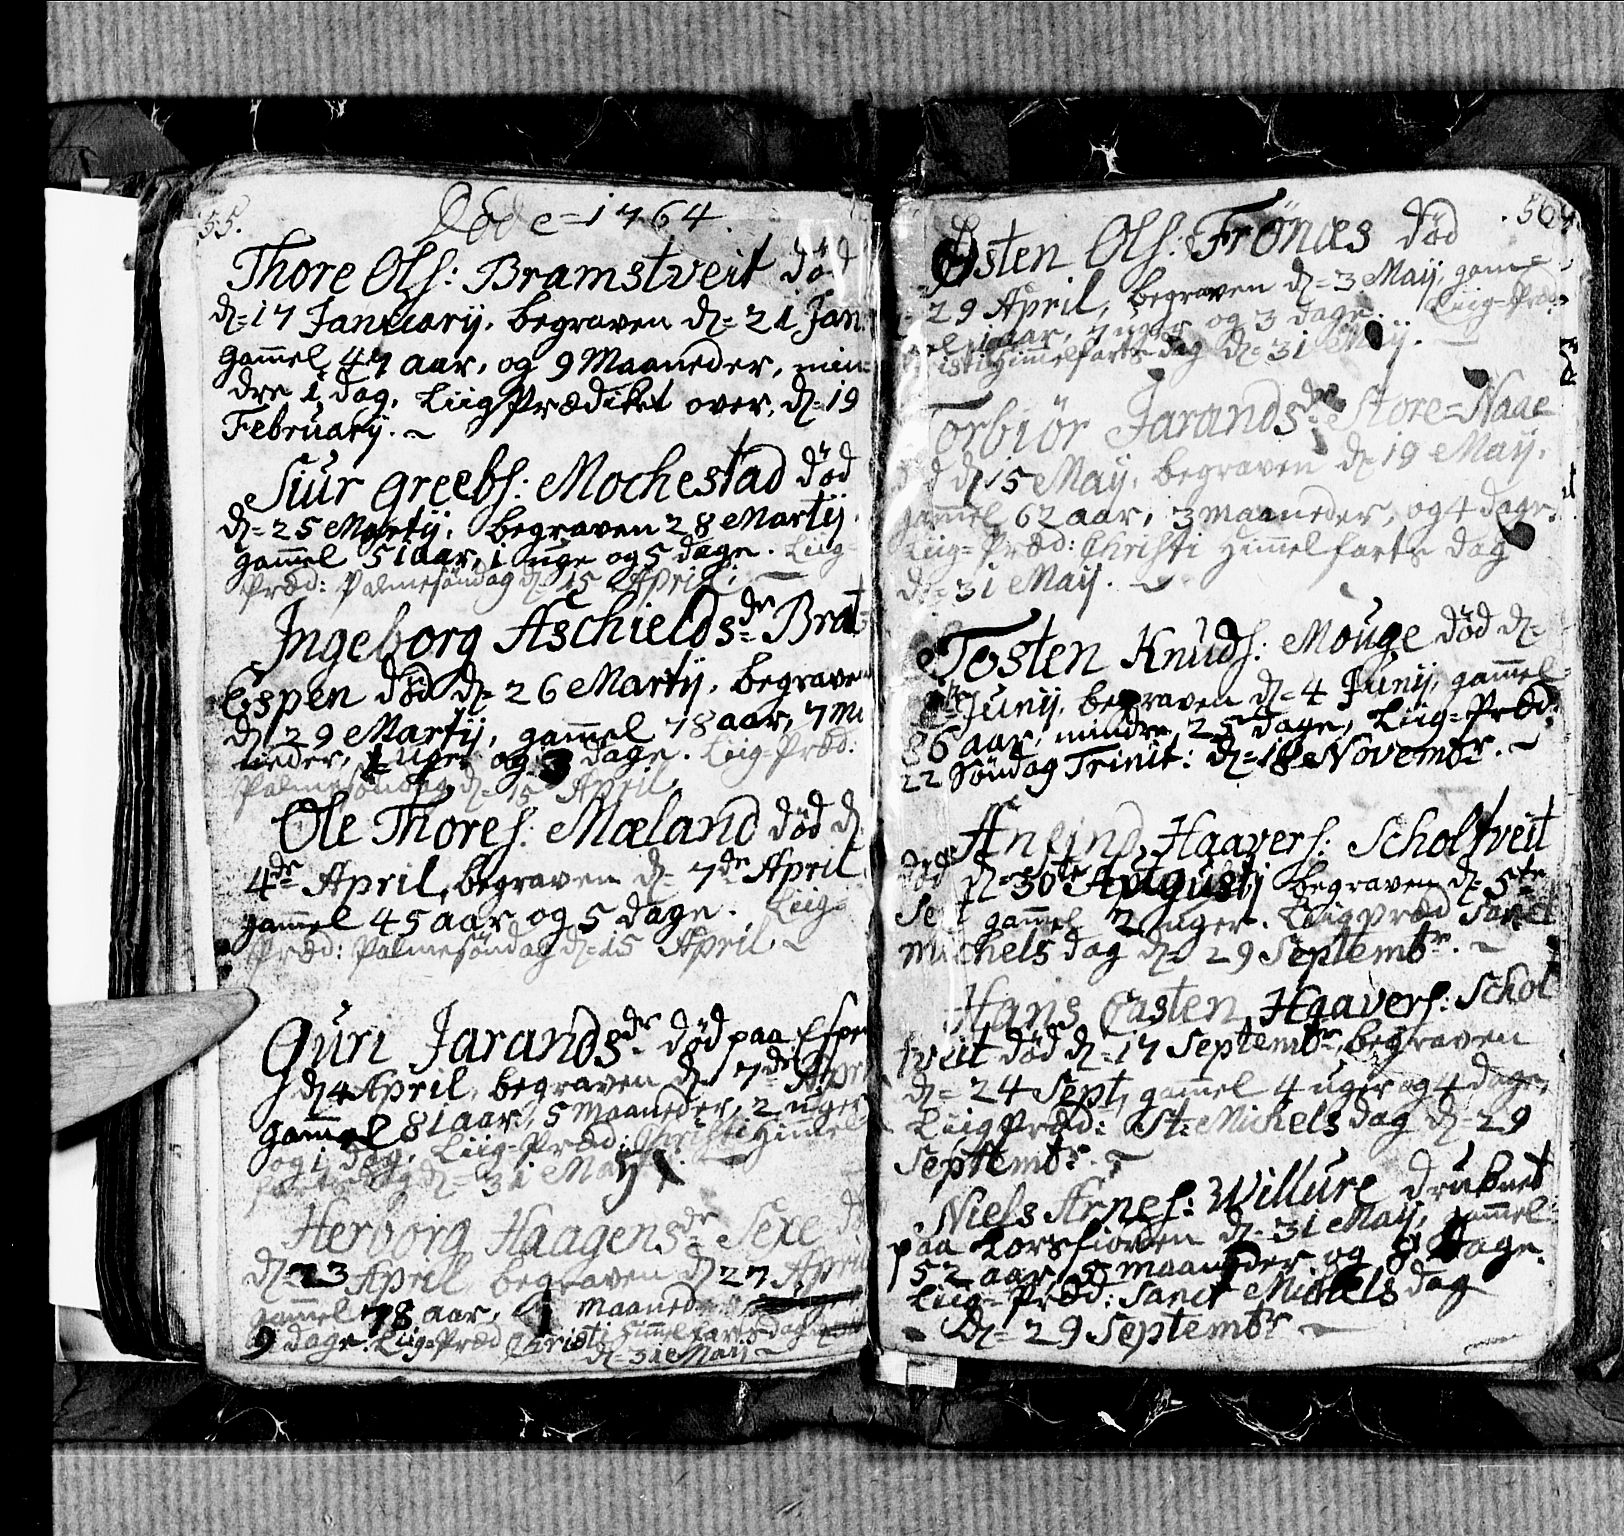 55.
Døde = 1764
Thore Ols: Bramstveit død
d = 17 Januarij. begraven d = 21 Jan.
gam̄el 47 aar, og 9 Maaneder, min=
dre 1 dag. Liig Prædiket over, d = 19
February. ~
Siur Greebs: Mochestad død
d = 25 Martij, begraven 28 Martij.
gam̄el 51 aar, 1 uge og 5 dage. Liig=
Præd: Palmesöndag d = 15 April. ~
Ingeborg Aschieldsdr. Brat=
Espen død d = 26 Martij, begraven
d 29 Martij, gam̄el 78 aar, 7 M
neder, uger og 3 dage. Liig-Præd:
Palmesöndag d = 15 April
Ole Thores: Mæland død d
4de April, begraven d = 7de April.
gam̄el 45 aar og 5 dage. Liig=
Præd: Palmesöndag d = 15 April. ~
Guri Jarandsdr død paa Espe
d 4 April, begraven d 7de Apri
gam̄el 81 aar, 5 maaneder, 2 uger
og 1 dag. Liig=Præd: Christi Him̄el
farts dag d = 31 Maij. ~
Herborg Haagensdr Sexe dö
d = 23 April begraven d 27 April
gam̄el 78 aar, 1 maaned
9 dage. Liig=Præd Christi Him̄elfarts dag
d = 31 Maij ~
56
Østen Ols: Frönæs død
29 April, begraven d = 3 Maij, gam=
el 1 aar, 7 uger og 3 dage. Liig=Præd:
isti Him̄elfarts dag d = 31 Maij. ~
Torbiör Jarandsdr Store=Naae
d d 15 Maij. begraven d 19 Maij.
gam̄el 62 aar, 3 maaneder, og 4 dage.
Liig=Præd: Christi Him̄elfarts dag
d = 31 Maij. ~
Tosten Knuds: Mouge død d =
Junij, begraven d = 4 Junij, gam̄el
86 aar, mindre 25 dage, Liig=Præd:
22 Söndag Trinit: d = 18 Novembr. ~
Anfind Haavers: Scholtveit
död d = 30te Augustij begraven d = 5te
Sept gam̄el 2 uger. Liigpræd Sanct
Michels dag d = 29 Septembr. ~
Hans Casten Haavers: Schol
tveit død d = 17 Septembr, begraven
d = 24 Sept, gam̄el 4 uger og 4 dage,
Liig Præd: St: Michels dag d = 29
Septembr. ~
Niels Arnes: Willure druknet
paa Korsfiorden d = 31 Maij, gam̄el
52 aar, 5 maaneder og 8 Dage.
Liig=Præd: Sanct Michels dag
d = 29 Septembr ~